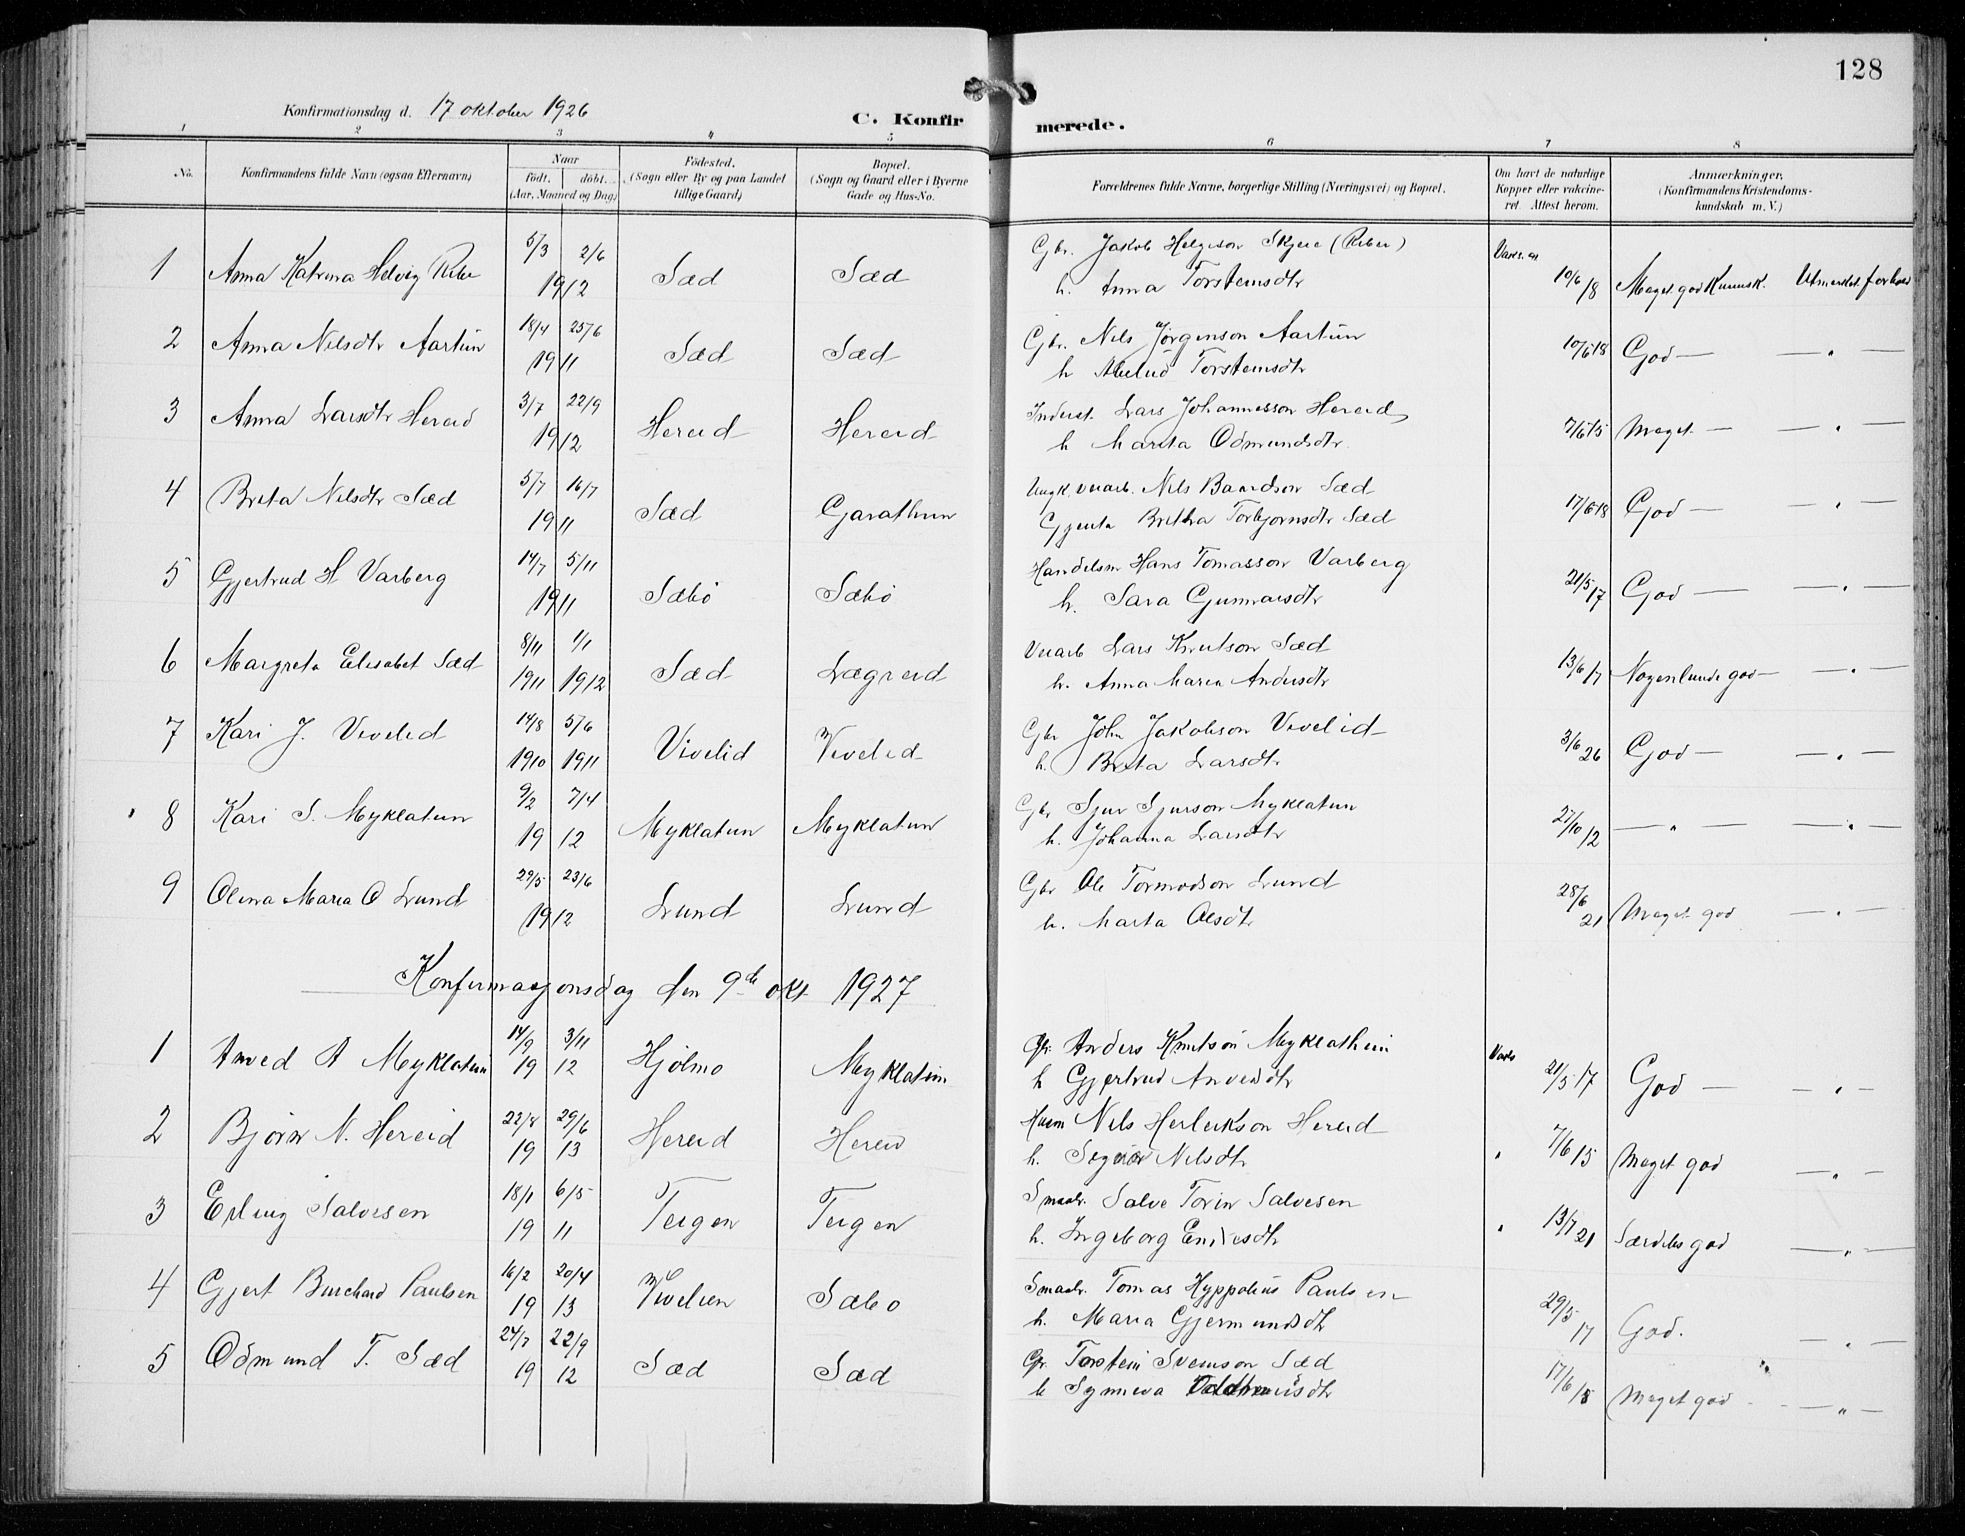 128
Konfirmationsdag d. 17 oktober 1926
C. Konfirmerede.
1 2 3 4 5 6 7 8
No. Konfirmandens fulde Navn (ogsaa Efternavn) Naar født. døbt. (Aar, Maaned og Dag) Fødested. (Sogn eller By og paa Landet tillige Gaard) Bopæl. (Sogn og Gaard eller i Byerne Gade og Hus-No. Forældrenes fulde Navne, borgerlige Stilling (Næringsvei) og Bopæl. Om havt de naturlige Kopper eller vakcineret. Attest herom. Anmærkninger. (Konfirmandens Kristendomskundskab m. V.)
1 Anna Katrina Helvig Riber 5/3 2/6 1912 Sæd Sæd Gbr. Jakob Helgeson Skjeie (Riber) h. Anna Torsteinsdtr 10/6 18 Meget god Kunnsk. Utmerket forhold
2 Anna Nilsdtr Aartun 18/4 25/6 1911 Sæd Sæd Gbr. Nils Jørgenson Aartun h Torsteinsdtr 10/6 18 God — — " —
3 Anna Larsdtr Hereid 3/7 22/9 1912 Hereid Hereid Inderst. Lars Johannesson Hereid h Marita Odmundsdtr. 7/6 15 Meget — — " —
4 Brita Nilsdtr Sæd 5/7 16/7 1911 Sæd Garathun Ungk. Nils Baardson Sæd Gjenta Britha Torbjørnsdtr Sæd 17/6 18 God — — " —
5 Gjertrud H Varberg 14/7 5/11 1911 Sæbø Sæbø Handelsm Hans Tomasson Varberg h. Sara Gunnarsdtr 21/5 17 God — — " —
6 Margreta Elisabet Sæd 8/11 1/1 1911 1912 Sæd Lægreid Lars Knutson Sæd h. Anna Maria Andersdtr 13/6 17 Nogenlunde god — — " —
7 Kari J. Vivelid 14/8 5/6 1910 1911 Vivelid Vivelid Gbr John Jakobson Vivelid h. Brita Larsdtr 3/6 26 God — — " —
8 Kari S. Myklatun 9/2 7/4 1912 Myklatun Myklatun Gbr Sjur Sjurson Myklatun h. Johanna Larsdtr 27/10 12 — " — — " —
9 Olina Maria O Lund 29/5 23/6 1912 Lund Lund Gbr Ole Tormodson Lund h. Marta Olsdtr 28/6 21 Meget god — " —
Konfirmasjonsdag den 9de okt 1927
1 Anved A Myklatun 14/9 3/11 1912 Hjølmo Myklatun Gbr. Anders Knutson Myklathun h Gjertrud Anvedsdtr Vaks 21/5 17 God — — " —
2 Bjørn N. Hereid 22/4 29/6 1913 Hereid Hereid Nils Herleikson Hereid h. Nilsdtr " 7/6 15 Meget god — " —
3 Erling Salvesen 18/1 6/5 1911 Teigen Teigen Smaabr. Salve Torin Salvesen h. Ingeborg Endresdtr " 13/7 21 Særdeles god — " —
4 Gjert Burchard Paulsen 16/2 20/4 1913 Sæbo Smaabr. Tomas Hyppolius Paulsen h. Maria Gjermundsdtr 29/5 17 God. — " —
5 Odmund T. Sæd 24/7 22/9 1912 Sæd Sæd Gbr. Torstein Sveinson Sæd h Synneva 17/6 18 Meget god — " —